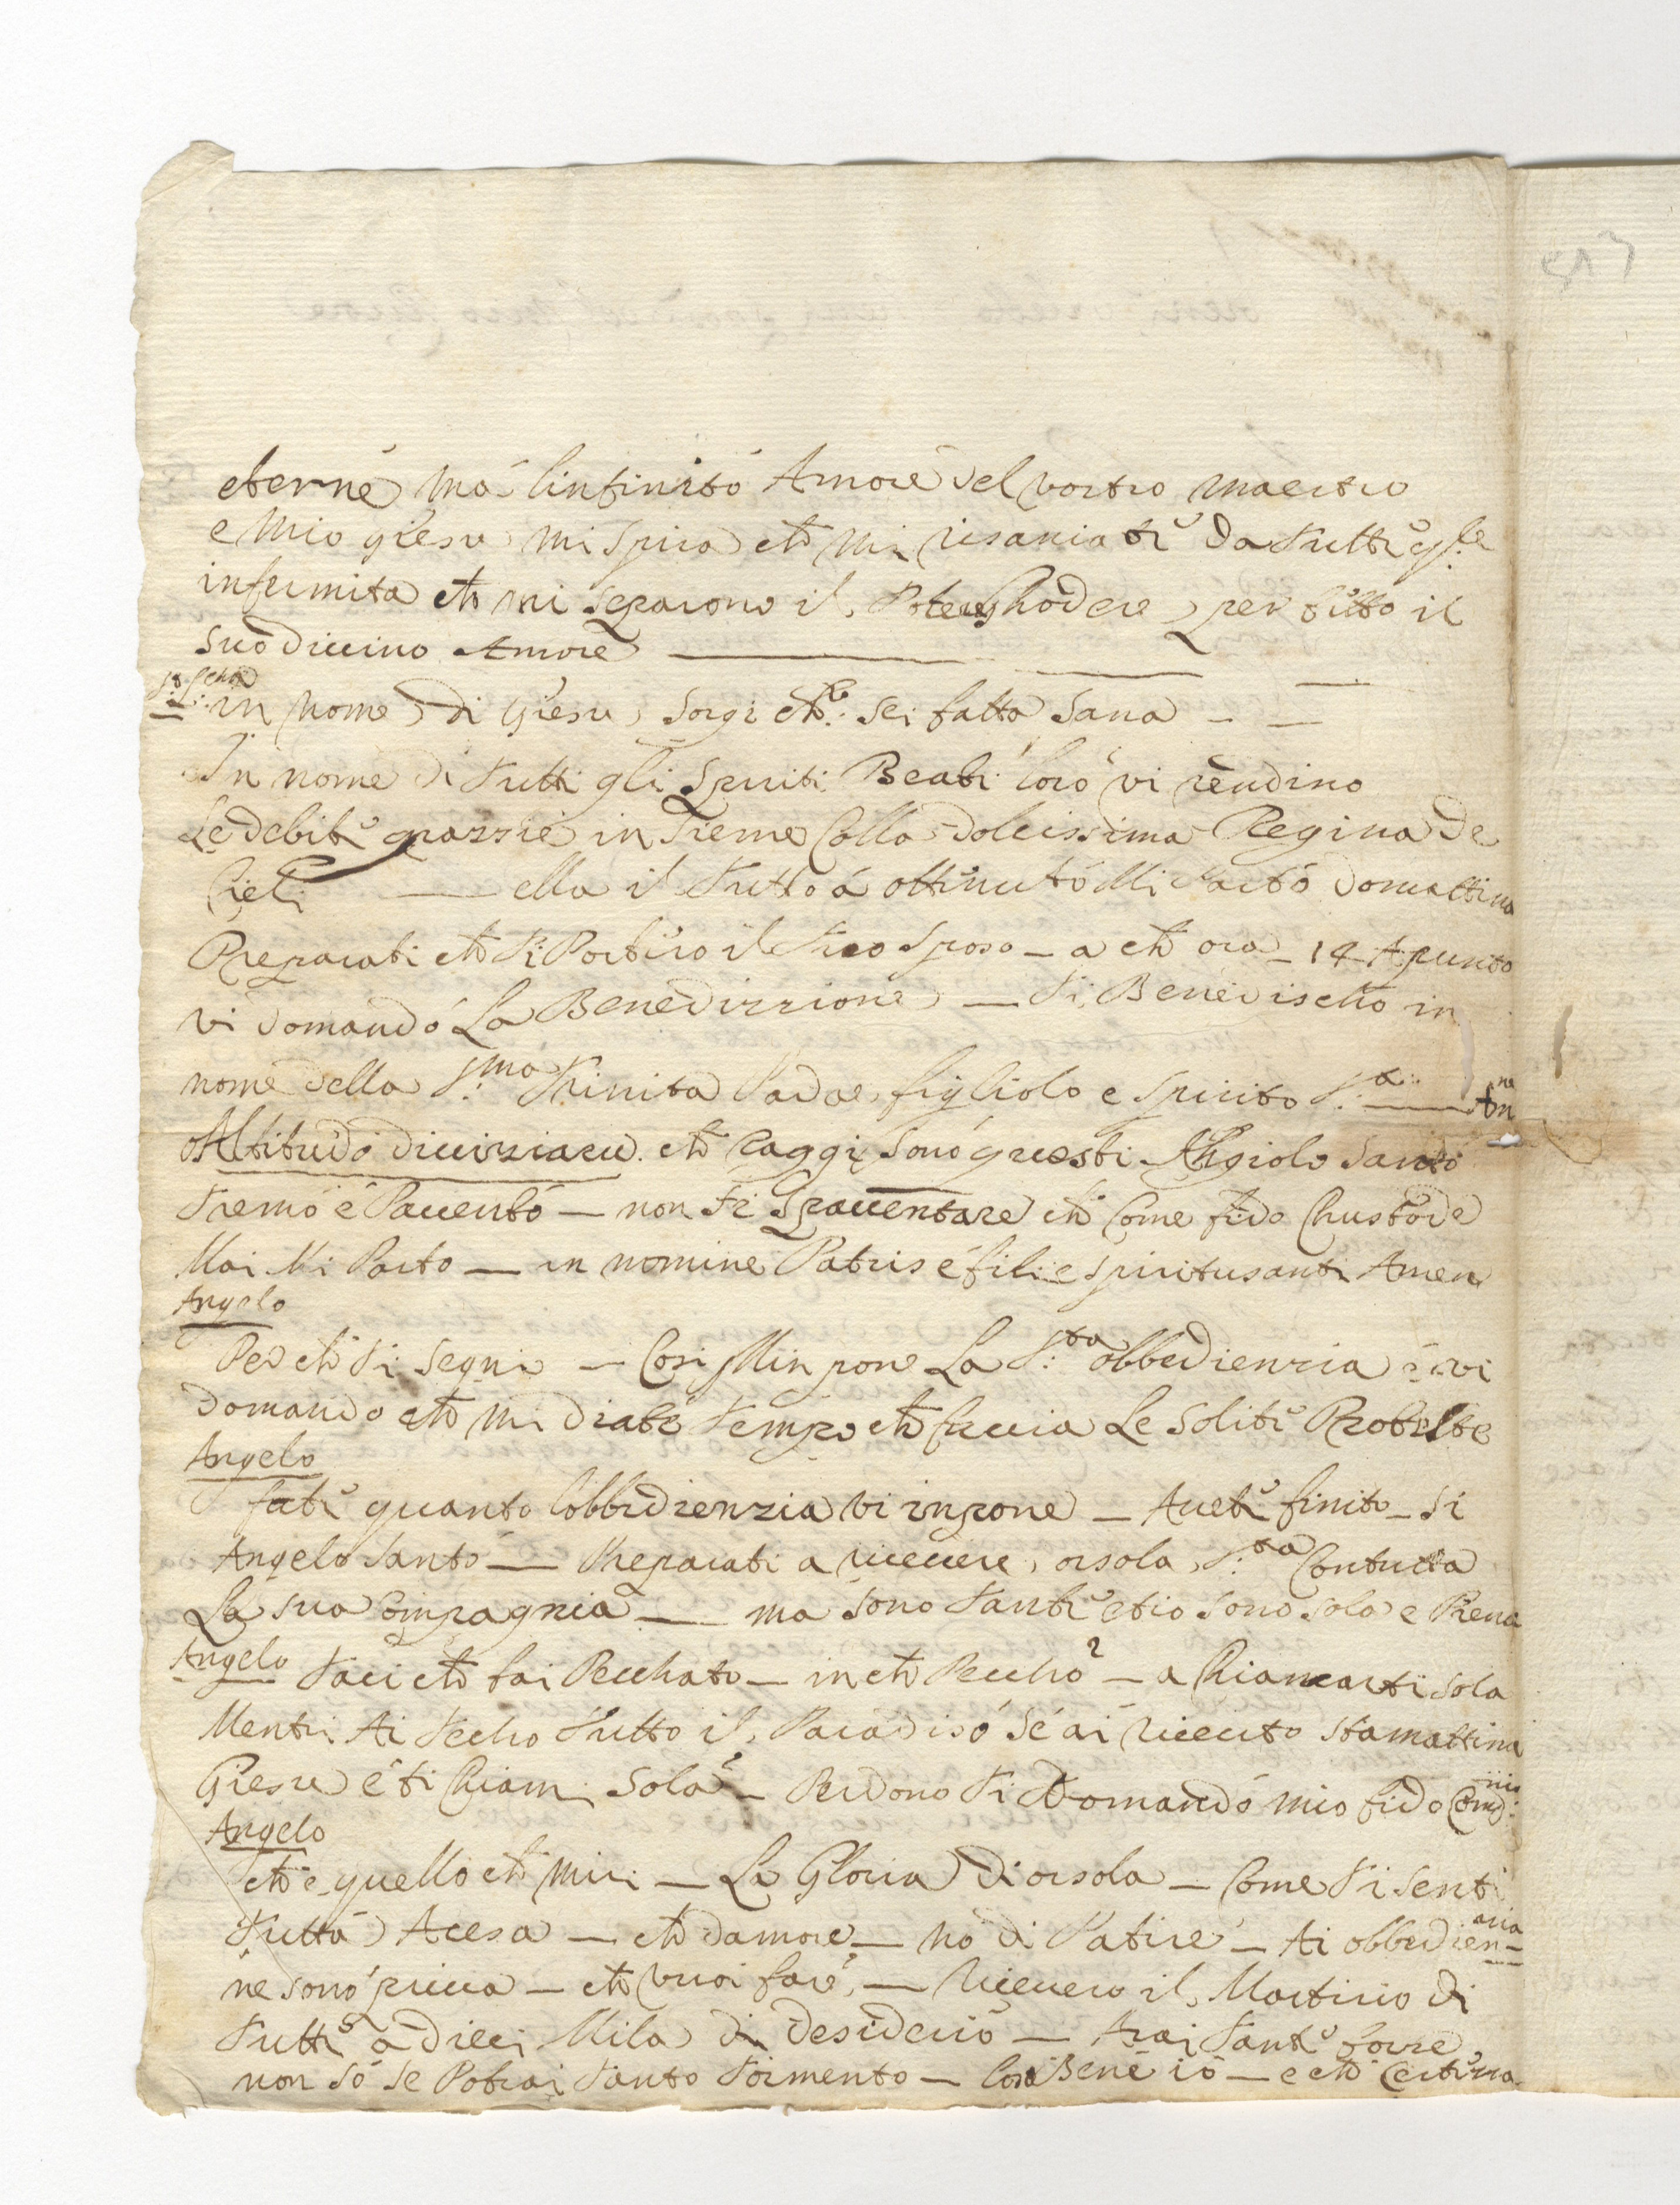 eterne ma linfinito Amore del vostro maestro
e Mio giesu mi spira che mi risaniate da tutte gle
infirmita che mi separono il Poter Ghodere per fitto il
suo divino Amore
in nome di Giesu sorgi che sei fatta sana
In nome di tutti gli Spiriti Beati loro vi rendino
Le debite grazzie in sieme Colla dolcissima Regina de
Cieli — ella il tutto á ottenuto Mi Parto domattina
Preparati che ti Portiro il tuo sposo — a che ora — 14 Apunto
vi domando La Benedizzione — ti Benedischo in
nome della S:ma Trinita Padre figliolo e Spirito S:
Altitudo diviziaru che raggi sono questi Angiolo Santo
tremo e Pavento — non ti spaventare che Come fido Chustode
Mai Mi Parto — in nomine Patris e fili e spiritusanti Amen
Angelo
Per che ti segni — Cosi Min pone La S:ta obbedienzia e vi
domando che mi diate tempo che faccia Le solite Proteste
Angelo
fate quanto lobbedienzia vi inpone — Avete finito — si
Angelo Santo — Preparati a ricevere orsola S:ta Contutta
La sua Compagnia — ma sono tante et io sono sola e Piena
Angelo Taci che fai Pecchato — in che Peccho? — a Chiamarti sola
Mentri Ai techo tutto il Paradiso se ai ricevuto stamattina
Giesu e ti Chiami sola — Perdono ti Domando mio fido
Angelo
che e quello che miri — La Gloria di orsola — Come ti senti
tutta Acesa — che damore — no di Patire — Ai obbedienzia
ne sono priva — che vuoi fare — ricevero il Martirio di
tutte a dieci Mila di desiderio — Arai tante forze
non so se Potrai tanto tormento — Cosi Bene io — e che Certezza